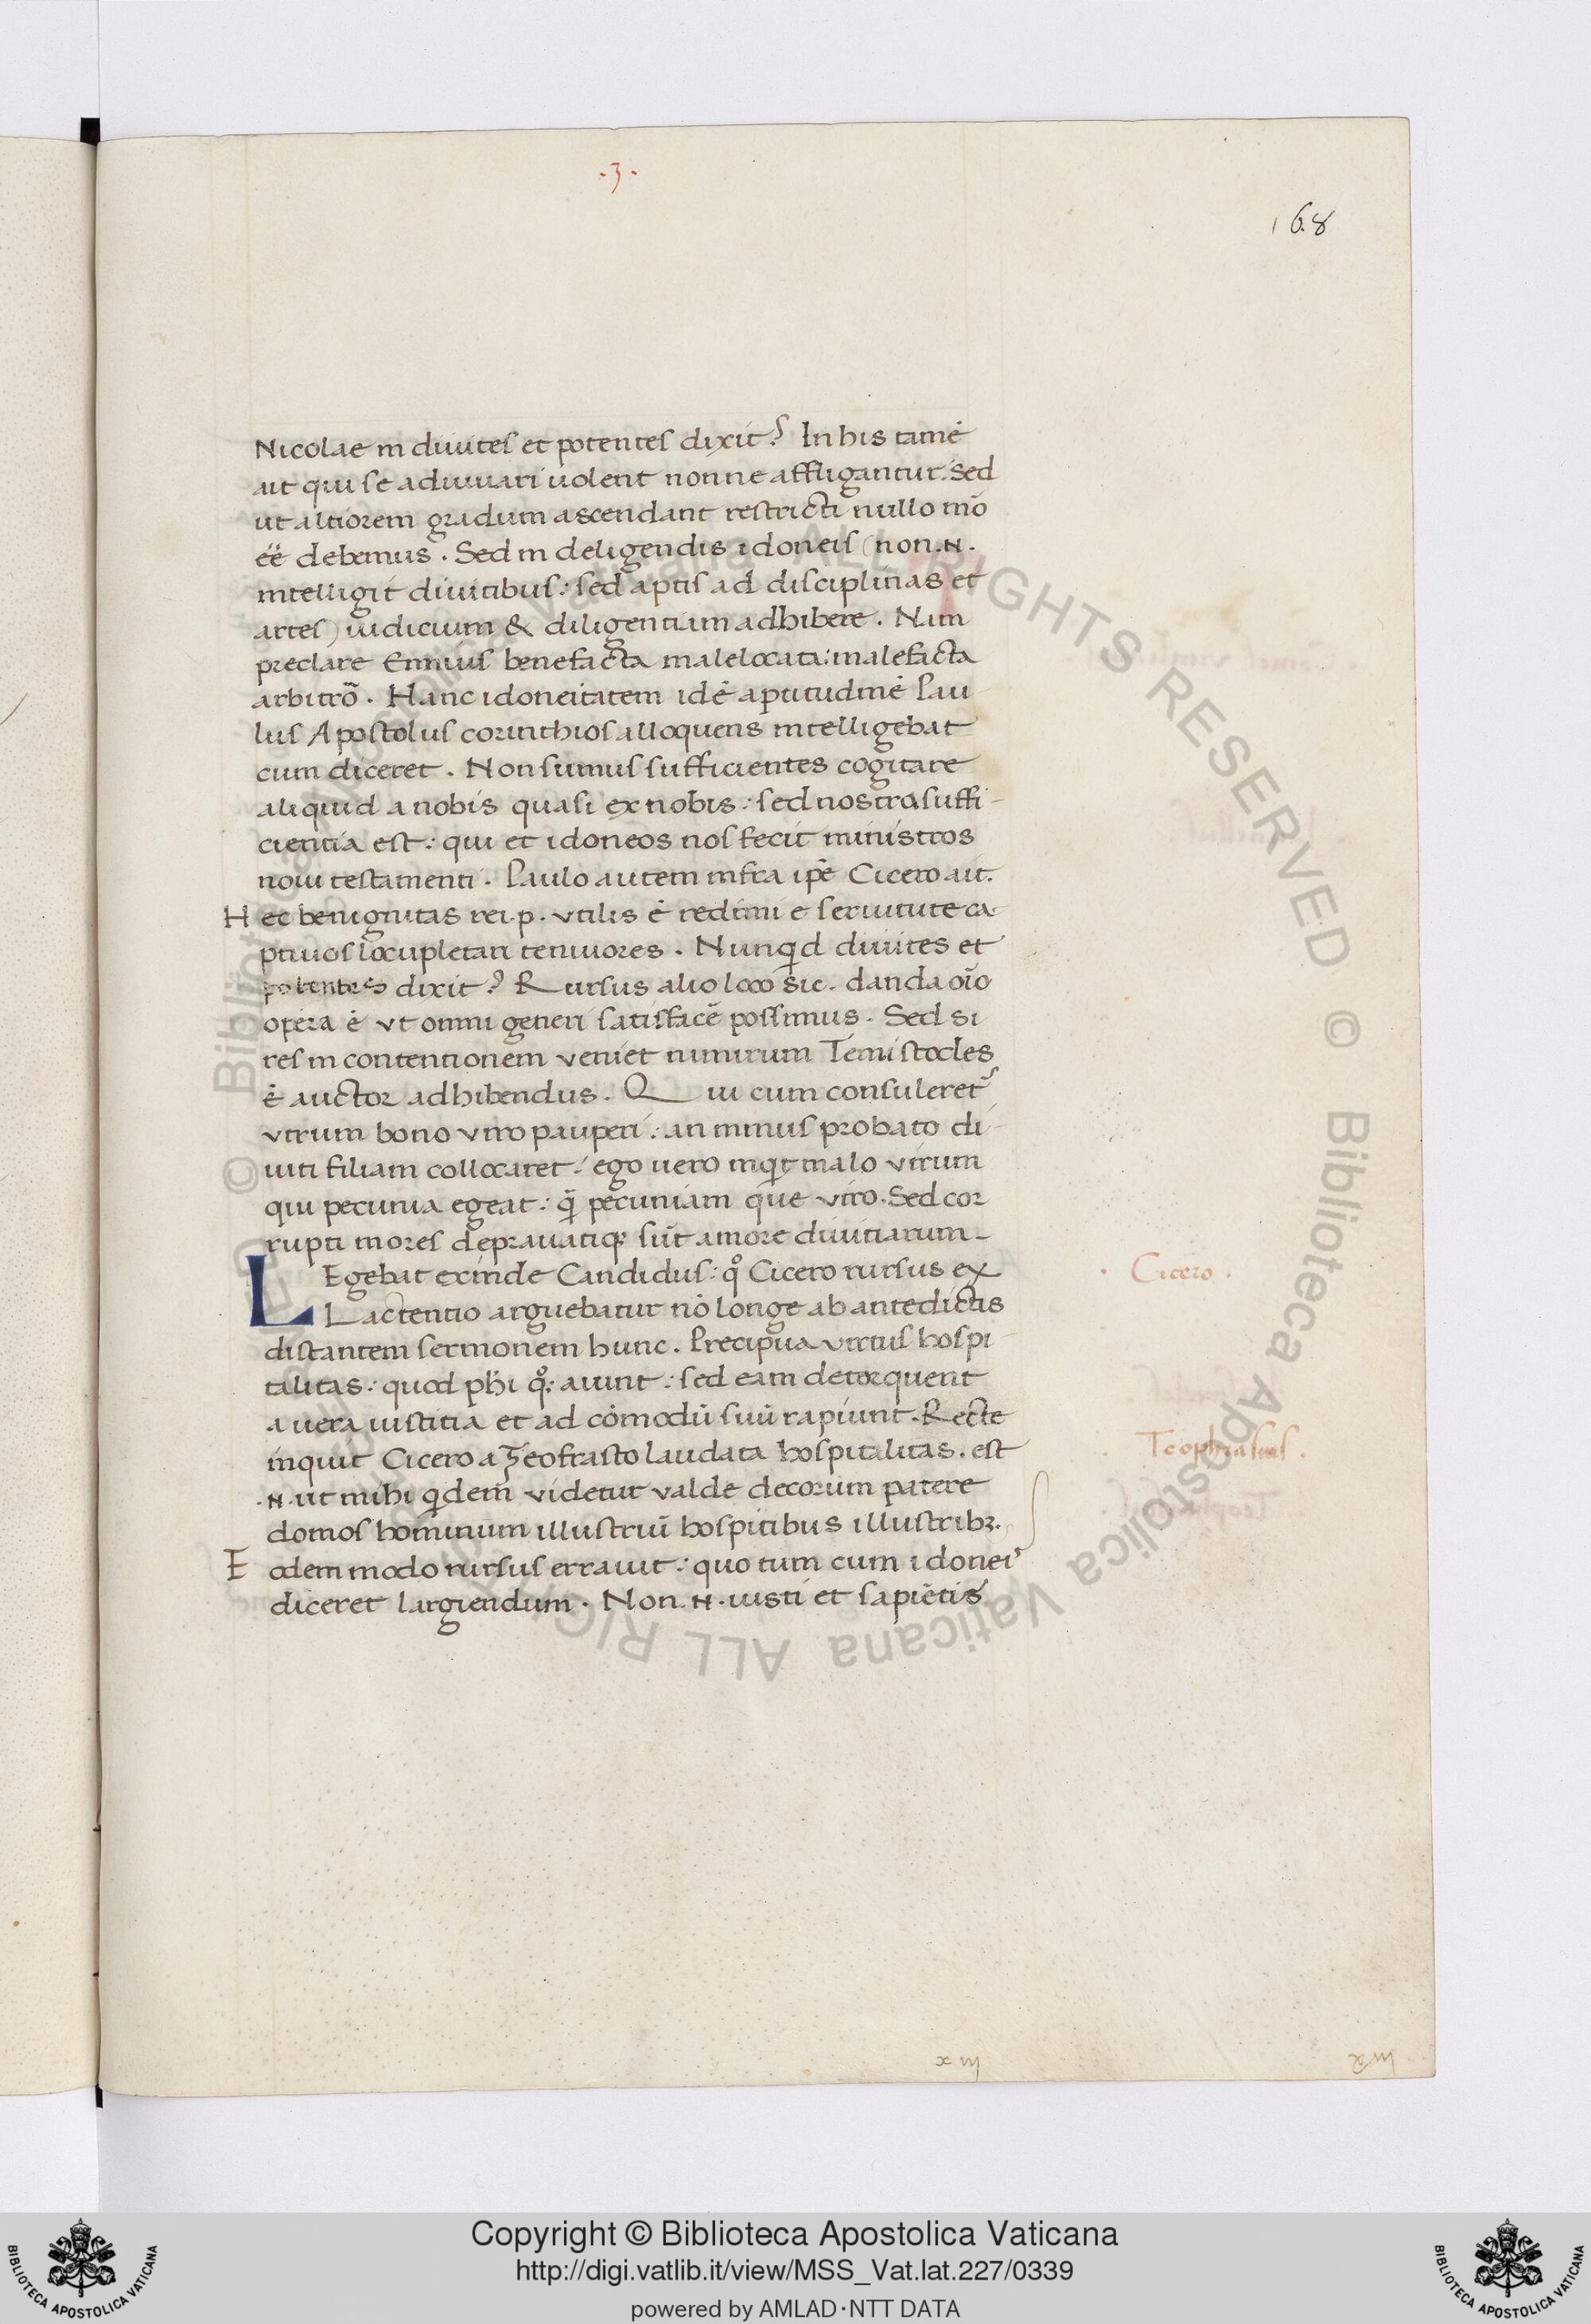 .3.
168
Nicolae in diuites et potentes dixit? In his tamē
ait qui se adiuuari uolent nonne affligantur. Sed
ut altiorem gradum ascendant restricti nullo mō
eē debemus. Sed in deligendis idoneis (non.N.
intelligit diuitibus: sed aptis ad disciplinas et
artes) iudicium & diligentiam adhibere. Nam
preclare Ennius benefacta malelocata: malefacta
arbitrō. Hanc idoneitatem idē aptitudinē Pau
lus Apostolus corinthios alloquens intelligebat
cum diceret. Non sumus sufficientes cogitare
aliquid a nobis quasi ex nobis: sed nostra suffi-
cientia est: qui et idoneos nos fecit ministros
noui testamenti. Paulo autem infra ipē Cicero ait.
Hec benignitas rei.p. vtilis ē redimi e seruitute ca-
ptiuos locupletari tenuiores. Nunqd diuites et
potentes dixit? Rursus alio loco sic. danda oīo
opera ē vt omni generi satisfacē possimus. Sed si
res in contentionem veniet nimirum Temistocles
ē auctor adhibendus. Qui cum consuleret
vtrum bono viro pauperi: an minus probato di-
uiti filiam collocaret: ego uero inqt malo virum
qui pecunia egeat: q̄ pecuniam que viro. Sed cor
rupti mores deprauatiq; sūt amore diuitiarum-
LEgebat exinde Candidus: qo Cicero rursus ex
Lactentio arguebatur nō longe ab antedictis
distantem sermonem hunc. Precipua virtus hospi-
talitas: quod phi qo; aiunt: sed eam detorquent
a uera iustitia et ad cōmodū suū rapiunt. Recte
inquit Cicero a Teofrasto laudata hospitalitas. est
.N. ut mihi qdem videtur valde decorum patere
domos hominum illustriū hospitibus illustrib3.
Eodem modo rursus errauit: quo tum cum idonei
diceret largiendum. Non.N. iusti et sapiētis
. Cicero .
Teophrastus .
© Biblioteca Apostolica Vaticana ALL RIGHTS RESERVED
Copyright © Biblioteca Apostolica Vaticana
http://digi.vatlib.it/view/MSS_Vat.lat.227/0339
powered by AMLAD·NTT DATA
BIBLIOTECA APOSTOLICA VATICANA
BIBLIOTECA APOSTOLICA VATICANA